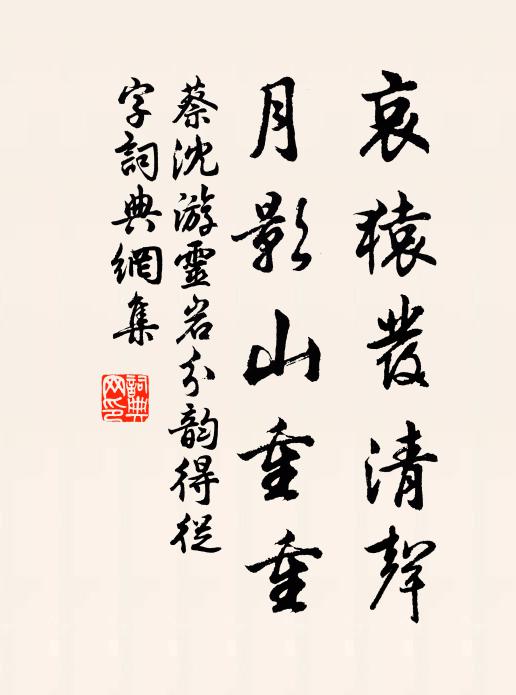 哀猿發清聲
月影山重重
蔡沈游靈岩分韵得從
字詞典網集
詞典
网印